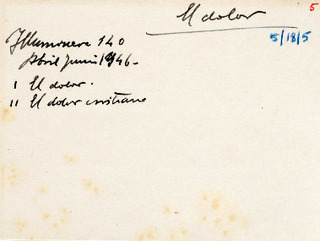 El dolor
5
5/18/5
Illuminare 140
Abril Junio 1946-
I El dolor.
II El dolor cristiano